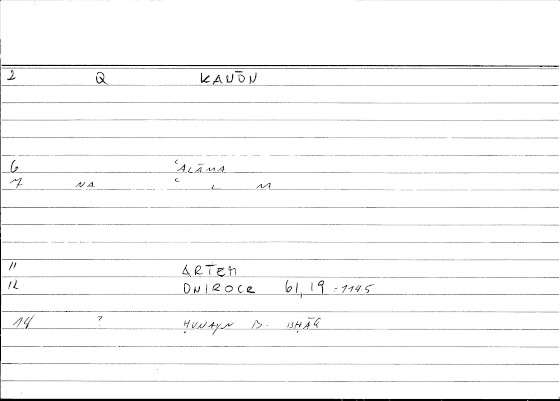 2 Q KANŌN
6 ʿALĀMA
7 NA ʿ L M
11 ARTEM
12 ONIROCR 61,19 = 1195
14 ? ḤUNAYN B. ISḤĀQ